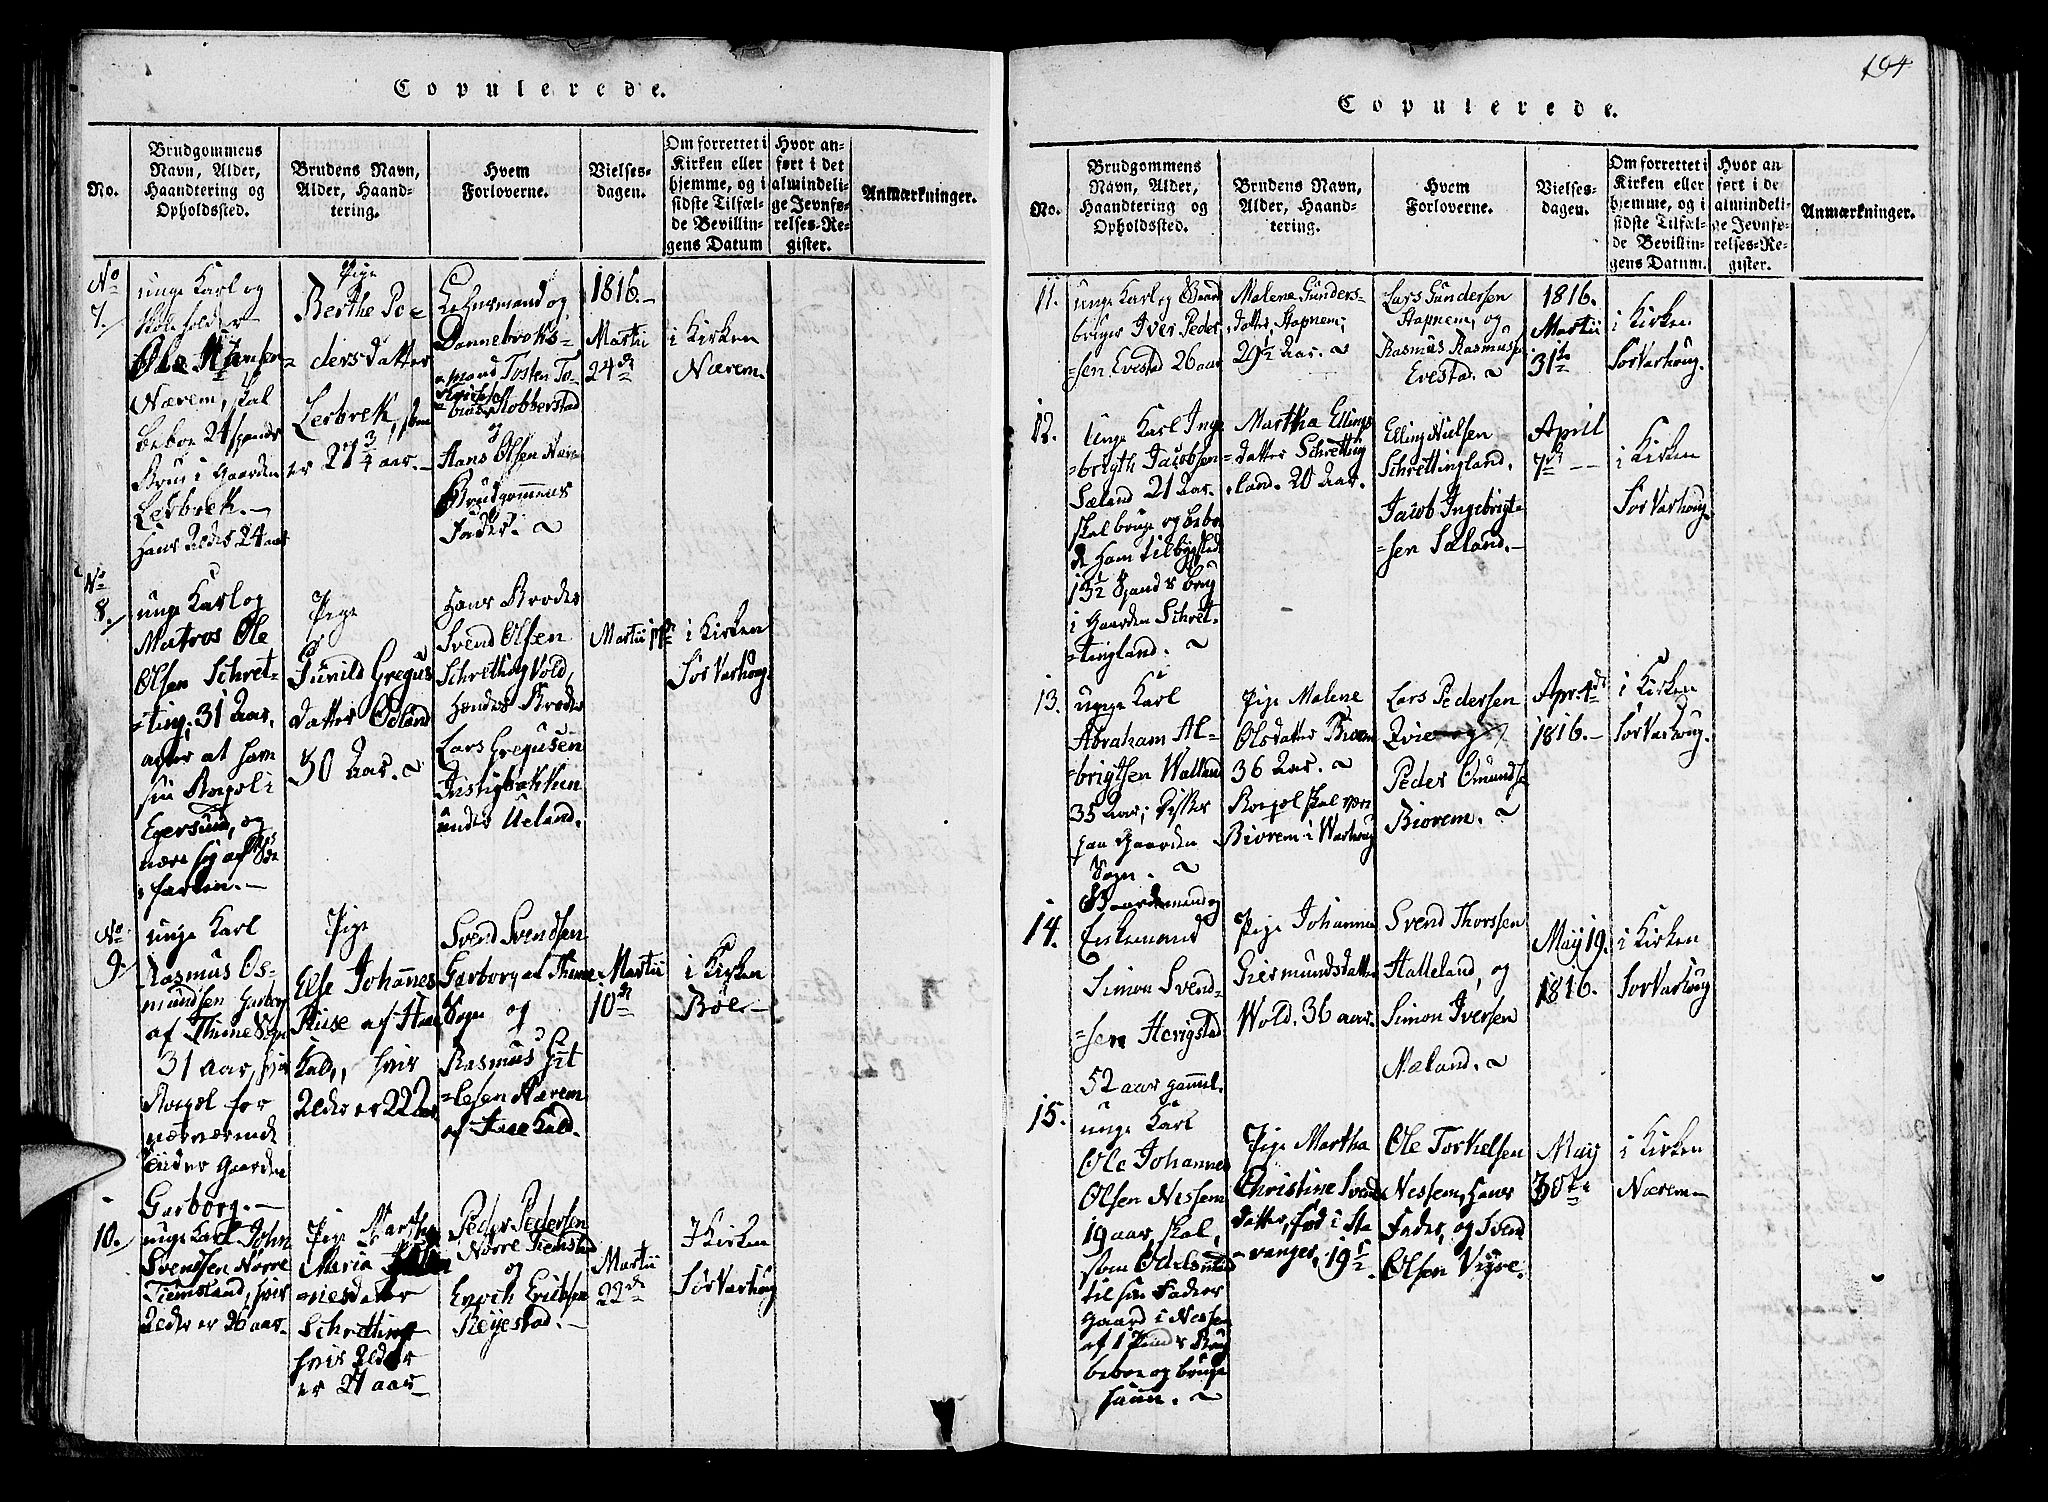 Copulerede.
No.
Brudgommens
Navn, Alder,
Haandtering og
Opholdssted.
Brudens Navn,
Alder, Haand-
tering.
Hvem
Forloverne.
Vielses-
dagen.
Om forrettet i
Kirken eller
hjemme, og i
sidste Tilfæl-
de Bevillin-
gens Datum
Hvor an-
ført i det
almindeli-
ge Jevnfø-
relses-Re-
gister.
Anmærkninger.
No
7.
unge Karl og
Ole Hansen
Nærem, skal
beboe 24 spands
Brug i Gaarden
Lerbrek.
Hans Alder 24 aar
Pige
Berthe Pe-
dersdatter
Lerbrek, som
er 27 3/4 aar.
Lehnsmand og
Dannebroks-
mand Tosten To-
Kobberstad
og
Hans Olsen Nær
Brudgommens
Fader.
1816.
Martii
24de
i Kirken
Nærem.
No
8.
unge Karl og
Matros Ole
Olsen Schret-
ting, 31 Aar,
agter at have
sin Boepæl i
Egersund, og
nære sig af Søe
farten.
Pige
Gunild Gregus
datter Ueland
30 Aar.
Hans Broder
Svend Olsen
Schretting Vold,
Hendes Broder
Lars Gregusen
under Ueland.
Martii
i Kirken
Sør Varhoug.
No
9.
unge Karl
Rasmus Os-
mundsen Garborg
af Thime Sogn
31 aar, hvis
Boepæl for
nærværende
under Gaarden
Garborg.
Pige
Else Johannes
af Haae
Kald, hvis
Alder er 22 Aar
Svend Svendsen
Garborg af Thime
Sogn og
Rasmus Git-
lesen Nærem
af Haae Kald.
Martii
10de
i Kirken
Böe
10.
unge Karl John
Svendsen Nörre
Tiemsland, hvis
Alder er 26 aar.
Pige Martha
Maria
nesdatter
Schretting
hvis Alder
er 27 aar
Peder Pedersen
Nörre Tiemsland
og
Enoch Erichsen
Reyestad.
Martii
22de
I Kirken
Sør Varhoug
194
Copulerede.
No.
Brudgommens
Navn, Alder,
Haandtering og
Opholdssted.
Brudens Navn,
Alder, Haand-
tering.
Hvem
Forloverne.
Vielses-
dagen.
Om forrettet i
Kirken eller
hjemme, og i
sidste Tilfæl-
de Bevillin-
gens Datum.
Hvor an
ført i de
almindeli-
ge Jevnfø-
relses-Re-
gister.
Anmærkninger.
11.
unge Karl og Gaard
bruger Iver Peder
sen Evestad 26 aar
Malene Gunders-
datter, Stapnem,
29 1/2 Aar.
Lars Gundersen
Stapnem, og
Rasmus Rasmusen
Evestad.
1816.
Martii
31te
i Kirken
Sør Varhoug.
12.
Unge Karl Inge
brigth Jacobsen
Sæland 21 Aar.
skal bruge og beboe
13 1/2 Spands brug
i Gaarden Schret-
tingland.
Martha Ellings
datter Schretting
land. 20 Aar.
Elling Nielsen
Schrettingland.
Jacob Ingebrigt-
sen Sæland.
April
7de
i Kirken
Sør Varhoug.
13.
unge Karl
Abraham Al-
brigtsen Walland
35 Aar;
paa Gaarden
Pige Malene
Olsdatter Biorem
36 Aar.
Boepæl skal være
Biorem i Warhoug
Sogn.
Lars Pedersen
Qvie og
Peder Omunds
Biorem.
Apr.
1816.
i Kirken
Sør Varhoug.
14.
Gaardmand og
Enkemand
Simon Svend-
sen Herigstad
52 aar gammel.
Pige Johanna
Giermundsdatter
Wold. 36 aar.
Svend Thorssen
Halleland, og
Simon Iversen
Næland.
May 19.
1816.
i Kirken
Sør Varhoug
15.
unge Karl
Ole Johannes
Olsen Nessem
19 aar, skal,
som Odelsmand
til sin Fader
Gaard i Nessem
af 1 Punds Brug
beboe og bruge
samme.
Pige Martha
Christine Svends
datter, fød i Sta
vanger, 19 1/2.
Ole Torkelsen
Nessem, Hans
Fader, og Svend
Olsen Vigre.
May
30te
i Kirken
Nærem